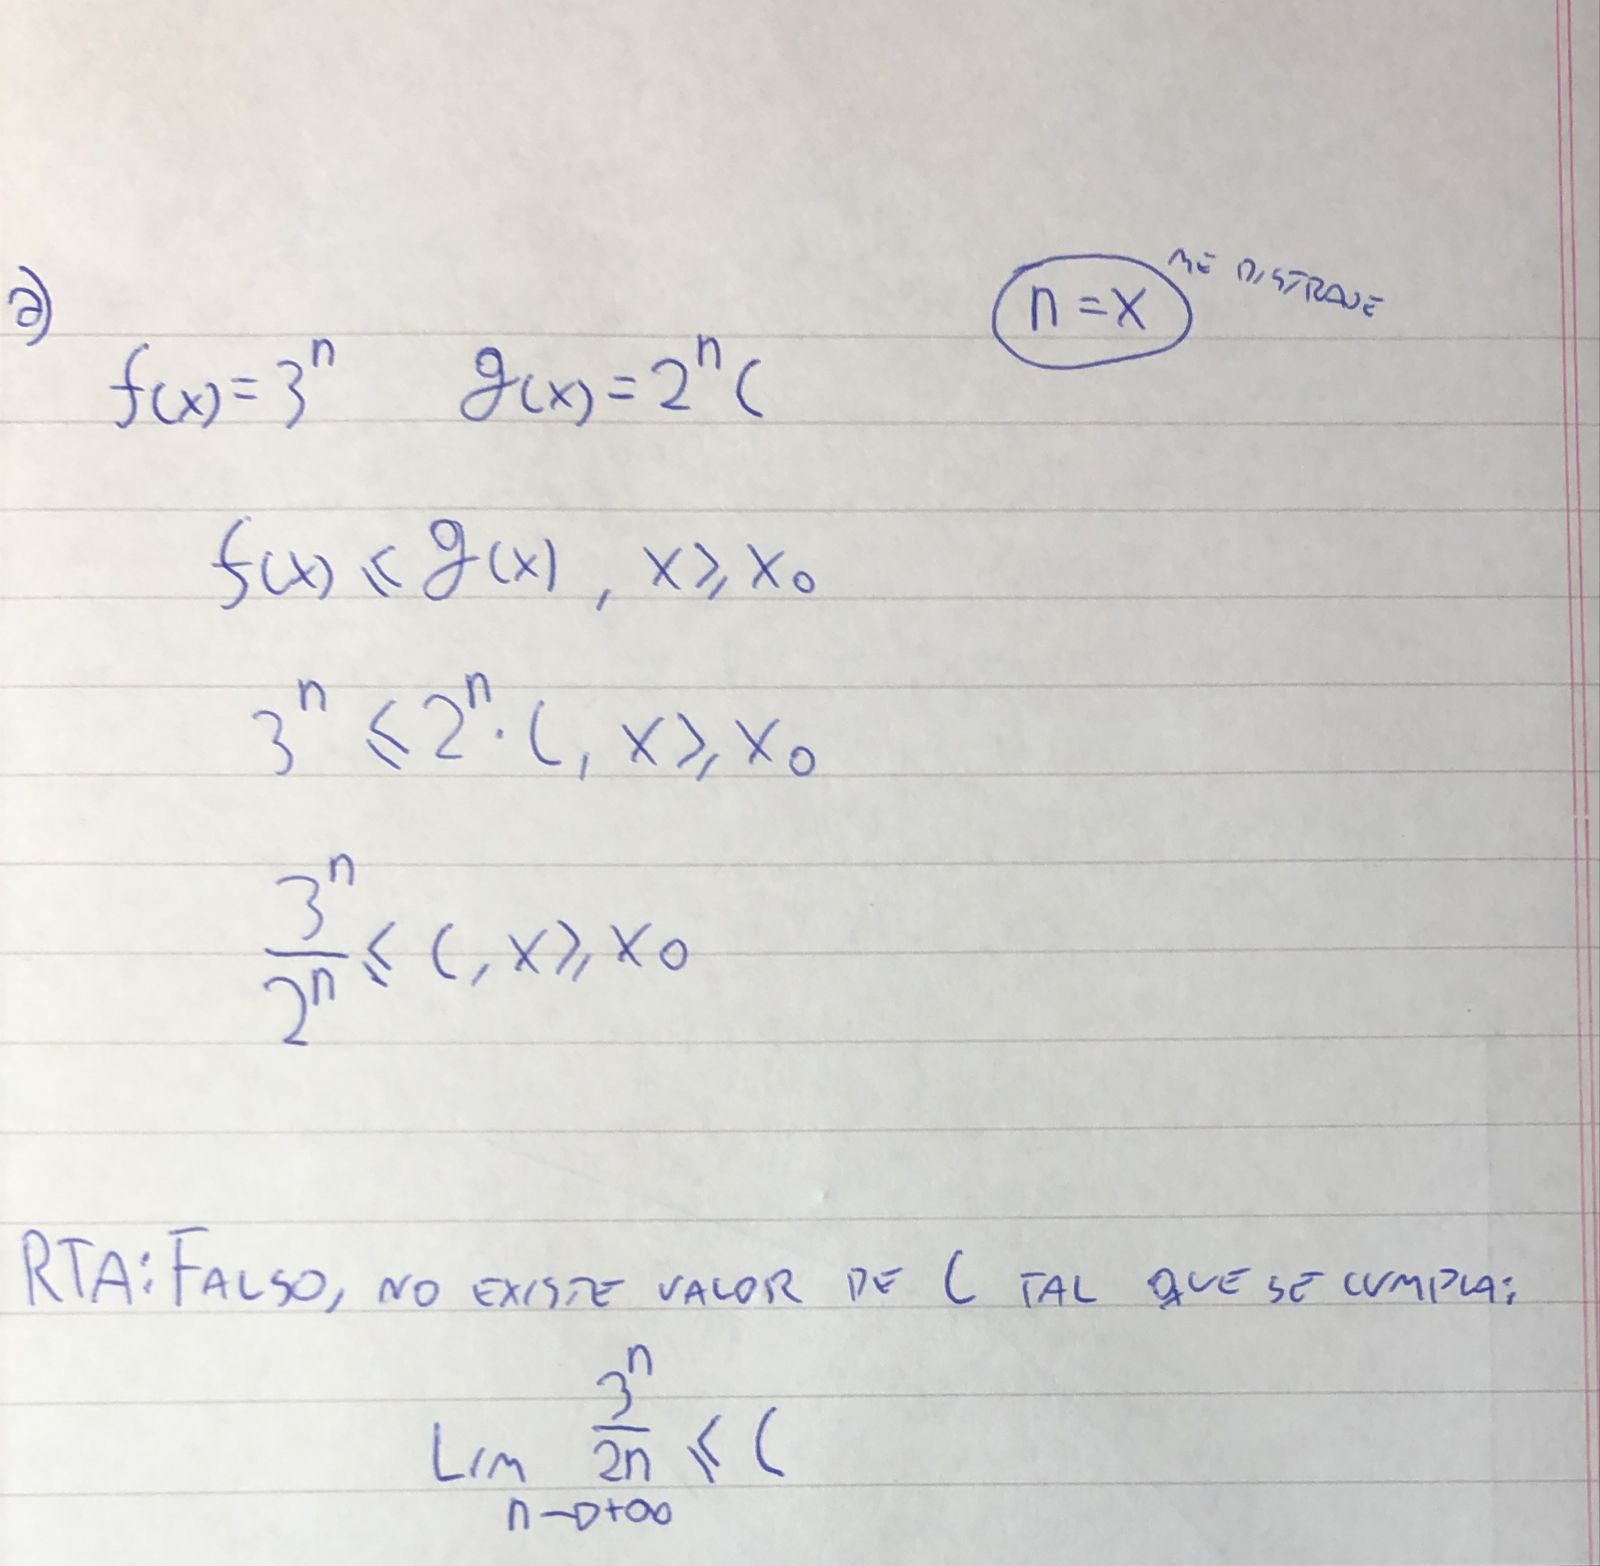 a)
n = x ME DISTRAJE
f(x) = 3^n g(x) = 2^n C
f(x) ⩽ g(x), x ⩾ x₀
3^n ⩽ 2^n · C, x ⩾ x₀
3^n / 2^n ⩽ C, x ⩾ x₀
RTA: FALSO, NO EXISTE VALOR DE C TAL QUE SE CUMPLA:
Lim n→+∞ 3^n / 2n ⩽ C